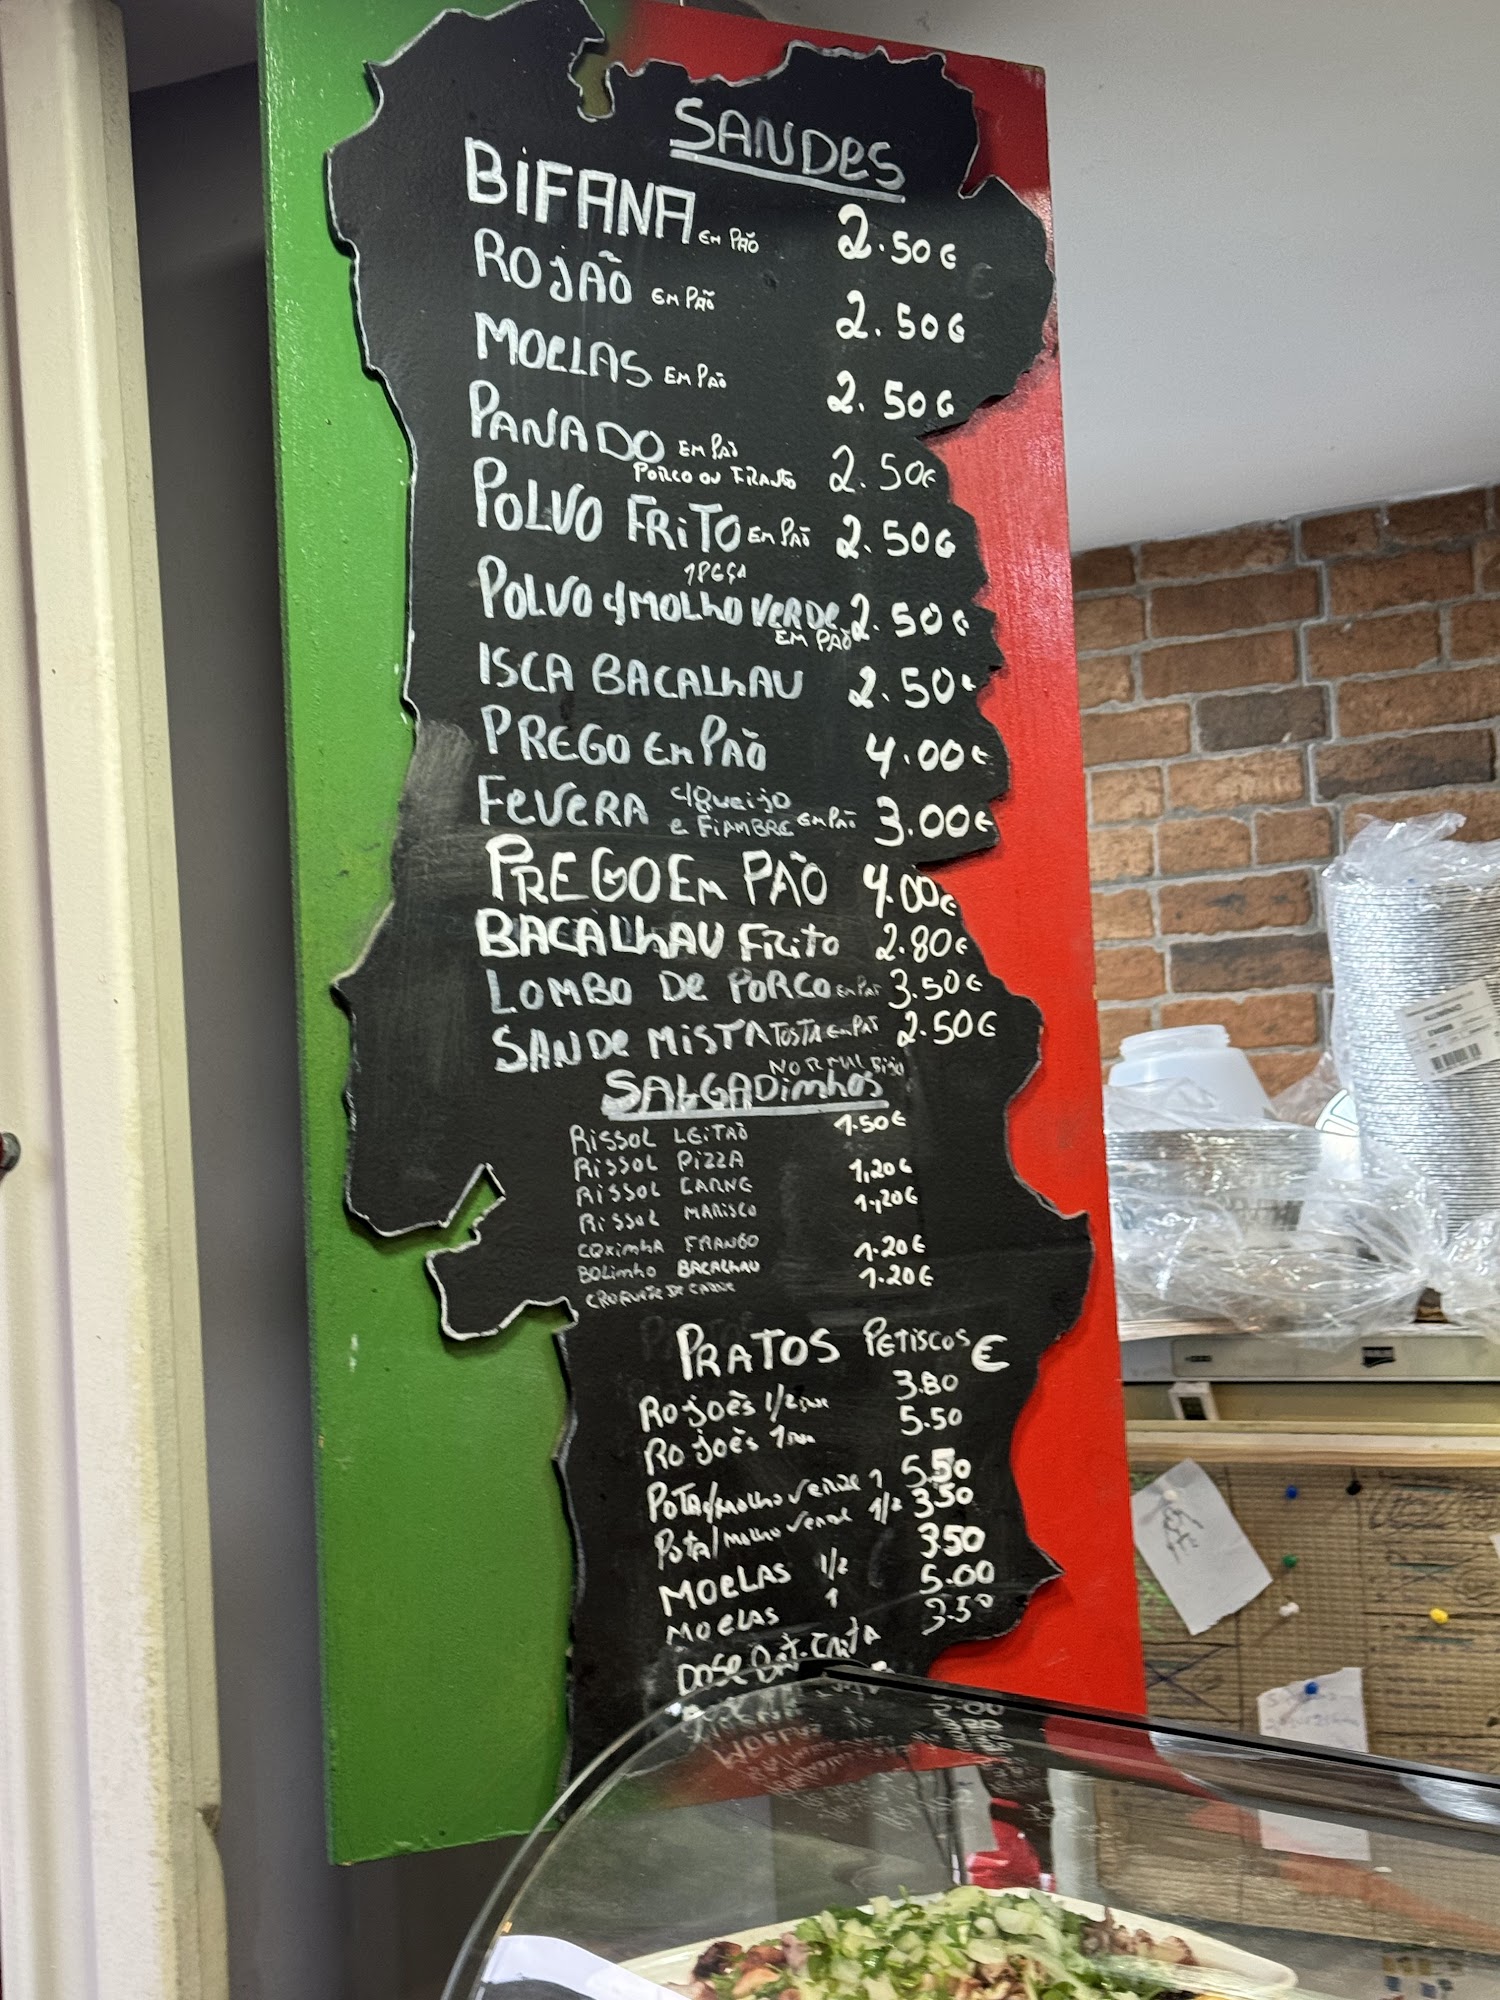 SANDES
BIFANA EM PÃO 2.50€
ROJÃO EM PÃO 2.50€
MOELAS EM PÃO 2.50€
PANADO EM PÃO 2.50€
PORCO OU FRANGO
POLVO FRITO EM PÃO 2.50€
1 PEÇA
POLVO c/MOLHO VERDE 2.50€
EM PÃO
ISCA BACALHAU 2.50€
PREGO EM PÃO 4.00€
FEVERA c/Queijo
e FIAMBRE EM PÃO 3.00€
PREGO EM PÃO 4.00€
BACALHAU FRITO 2.80€
LOMBO DE PORCO EM PÃO 3.50€
SANDE MISTA TOSTA EM PÃO 2.50€
NORMAL
SALGADinhos
RISSOL LEITÃO 1.50€
RISSOL PIZZA
RISSOL CARNE 1,20€
RISSOL MARISCO 1,20€
COXINHA FRANGO 1.20€
BOLINHO BACALHAU 1.20€
CROQUETE DE CARNE
PRATOS PETISCOS €
Rojoês 1/2 3.80
Rojoês 1 5.50
POTA c/molho verde 1 5.50
Pota/molho verde 1/2 3.50
MOELAS 1/2 3.50
MOELAS 1 5.00
Dose 3.50